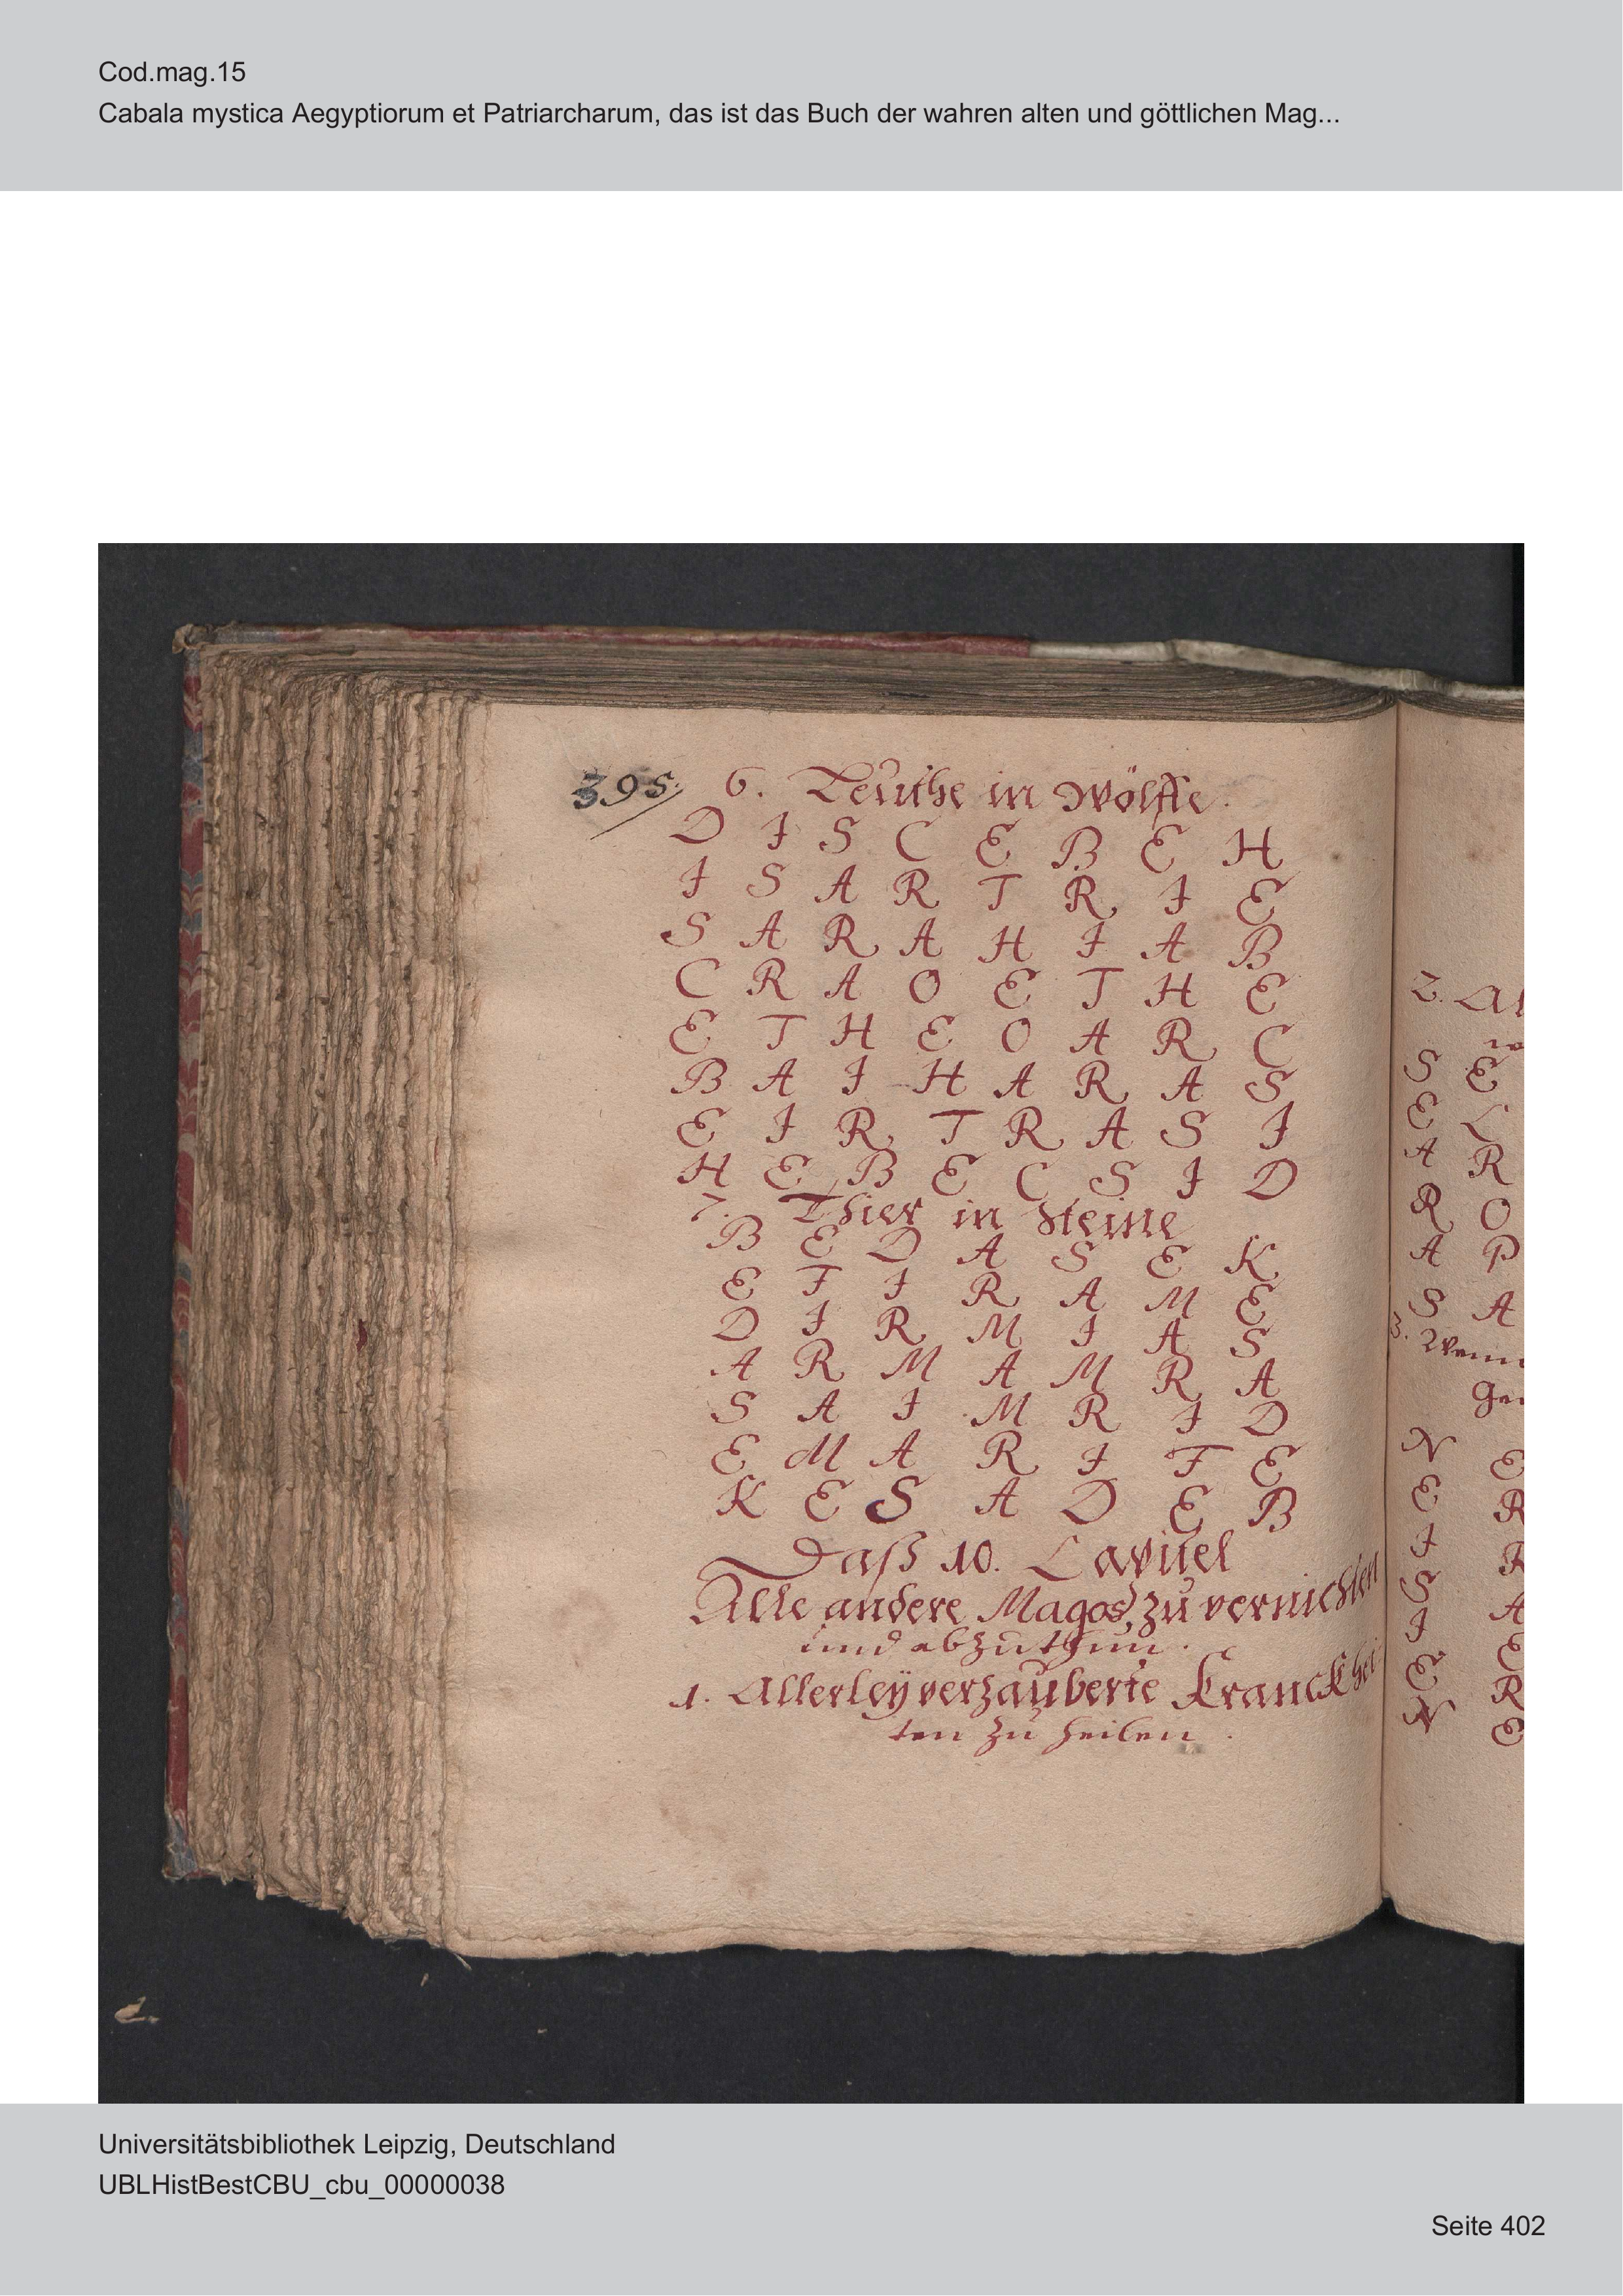 Cod.mag.15
Cabala mystica Aegyptiorum et Patriarcharum, das ist das Buch der wahren alten und göttlichen Mag...
395. 6. Leüthe in Wölffe.
D I S C E B E H
I S A R T R I E
S A R A H I A B
C R A O E T H E
E T H E O A R C
B A I H A R A S
E I R T R A S I
H E B E C S I D
7. Thier in Steine
B E D A S E K
E F I R A M E
D I R M I A S
A R M A M R A
S A I M R I D
E M A R I F E
K E S A D E B
Daß 10. Capitel
Alle andere Magos, zu vernichten
und abzuthun.
1. Allerleÿ verzauberte Kranckhei
ten zu heilen.
2. Al
S E
E L
A R
R O
A P
S A
3. Wenn
N E
E R
I
S A
I E
E R
N E
Universitätsbibliothek Leipzig, Deutschland
UBLHistBestCBU_cbu_00000038
Seite 402